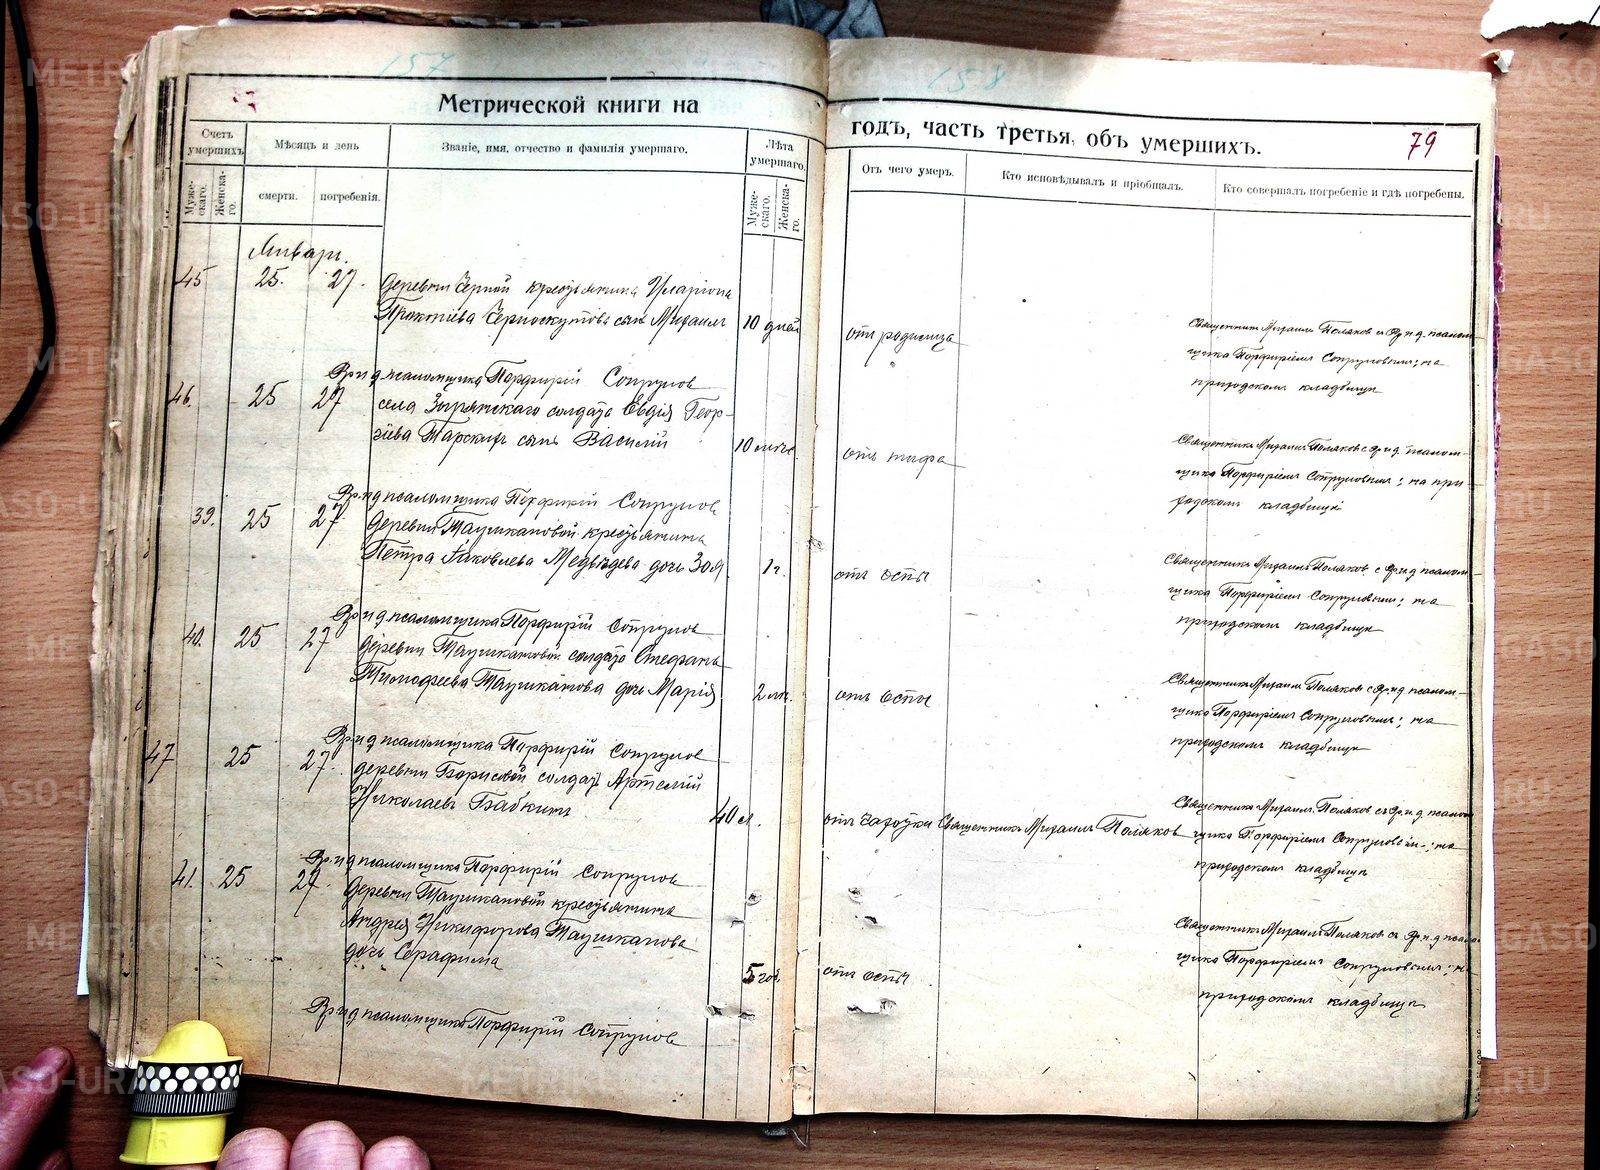 157
158
Метрической книги на
годъ, часть третья, объ умершихъ.
79
Счетъ умершихъ.
Мѣсяцъ и день
Званіе, имя, отчество и фамилія умершаго.
Лѣта умершаго.
Отъ чего умеръ.
Кто исповѣдывалъ и пріобщалъ.
Кто совершалъ погребеніе и гдѣ погребены.
Муже-скаго.
Женска-го.
смерти.
погребенія.
Муже-скаго.
Женска-го.
Январь.
45 25. 27. деревни Черной крестьянина Иларіона
Прокопіева Черноскутова сынъ Михаилъ
10 дней
отъ родимца
Священникъ Михаилъ Поляковъ и вр. и д. псалом-
щика Порфиріемъ Сопруновымъ; на
приходскомъ кладбищѣ
Вр. и д. псаломщика Порфирій Сопрунов
46. 25 27 села Зырянскаго солдата Евдія Геор-
гіева Тарскихъ сынъ Василій
10 мѣс.
отъ тифа
Священникъ Михаилъ Поляковъ с вр. и д. псалом-
щика Порфиріемъ Сопруновымъ; на при-
ходскомъ кладбищѣ
Вр. и д. псаломщика Порфирій Сопрунов
39. 25 27 деревни Таушкановой крестьянина
Петра Яковлева Медвѣдева дочь Зоя
1 г.
отъ оспы
Священникъ Михаилъ Поляковъ с вр. и д. псалом-
щика Порфиріемъ Сопруновымъ; на
приходскомъ кладбищѣ
Вр. и д. псаломщика Порфирій Сопрунов
40. 25 27 деревни Таушкановой солдата Стефана
Тимофеева Таушканова дочь Марія
2 м.
отъ оспы
Священникъ Михаилъ Поляковъ с вр. и д. псалом-
щика Порфиріемъ Сопруновымъ; на
приходскомъ кладбищѣ
Вр. и д. псаломщика Порфирій Сопрунов
47 25 27. деревни Борисовой солдатъ Артемій
Николаевъ Бабкинъ
40 л.
отъ чахотки
Священникъ Михаилъ Поляков
Священникъ Михаилъ Поляковъ съ вр. и д. псалом
щика Порфиріемъ Сопруновым; на
приходскомъ кладбищѣ
Вр. и д. псаломщика Порфирій Сопрунов
41. 25 27. деревни Таушкановой крестьянина
Андрея Никифорова Таушканова
дочь Серафима
5 год.
отъ оспы
Священникъ Михаилъ Поляковъ съ вр. и д. псалом
щика Порфиріемъ Сопруновымъ; на
приходскомъ кладбищѣ
Вр. и д. псаломщика Порфирій Сопрунов